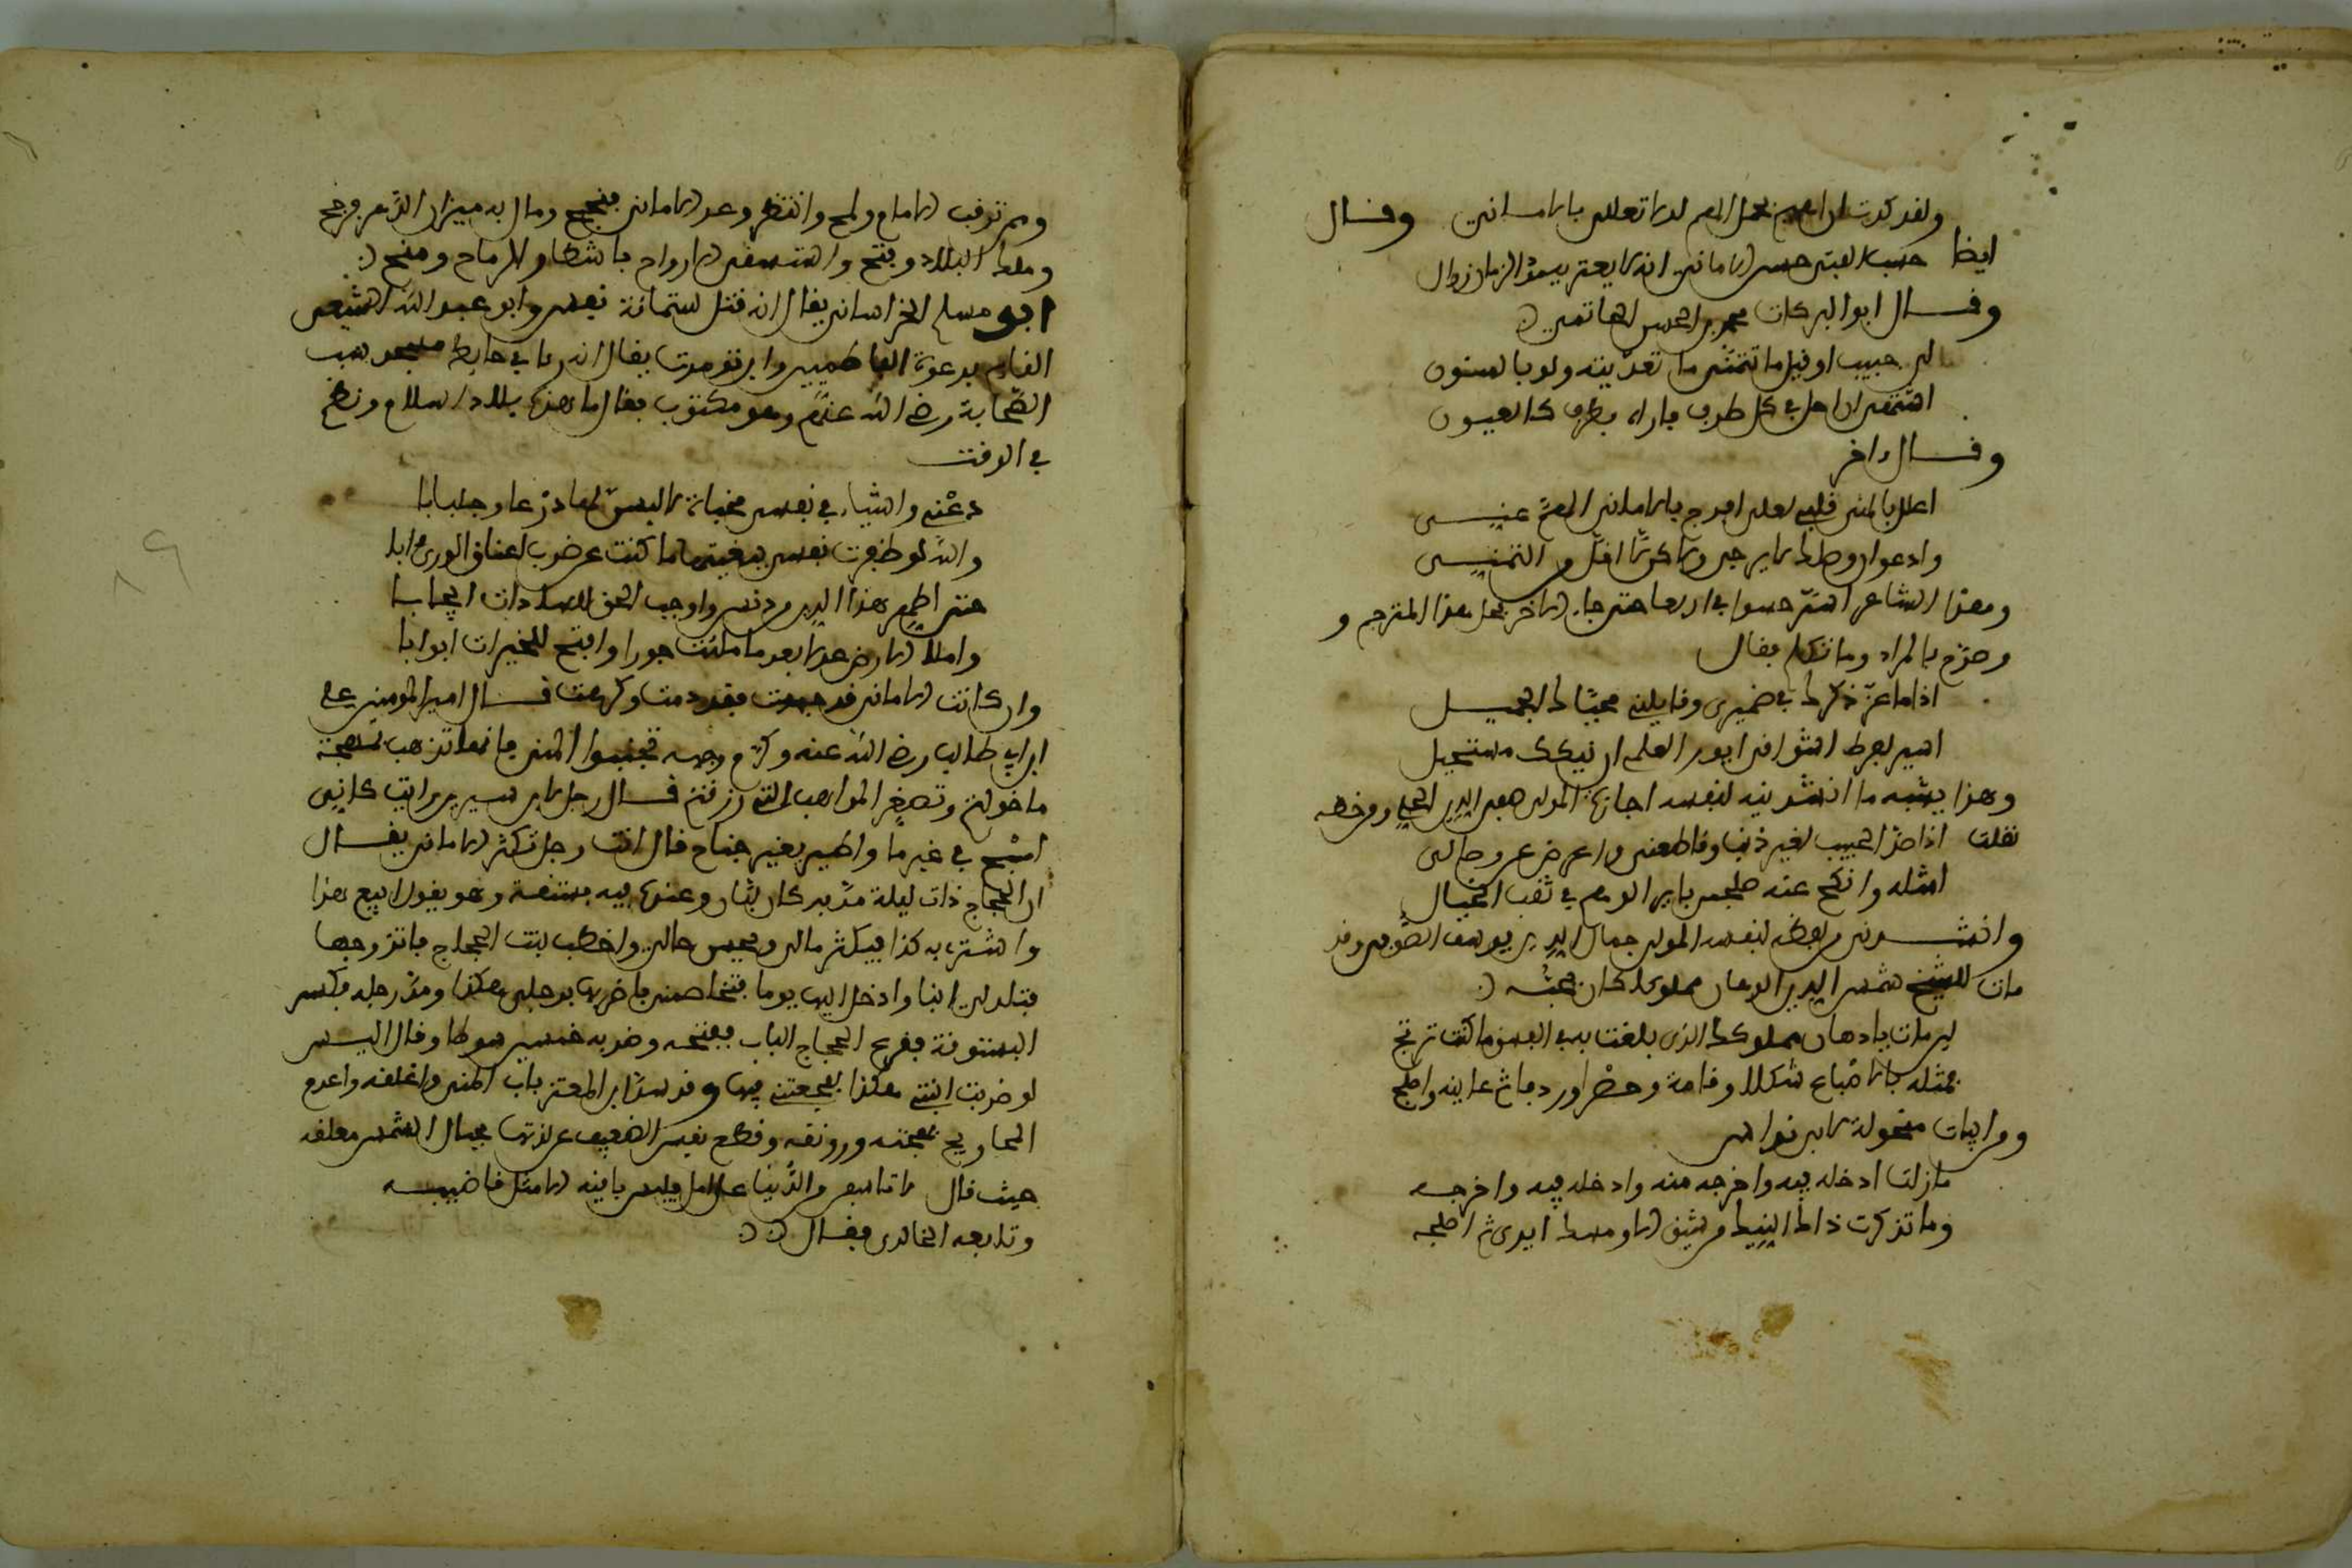 ولقد كدت ان اصير نحول الجسم لولا تعللي بالاماني وقال
ايضا حسب المعنى حسن الاماني انه لا يعتريه مدا الزمان زوال
وقال ابو البركات محمد بن الحسن الحاتمي
لي حبيب لو قيل ما تتمنى ما تعديته ولو بالمنون
اشتهي ان احل في كل طرف فاراه بطرف كل العيون
وقال اخر
اعلل بالمنى قلبي لعلي افرج بالاماني الهم عني
وادعو ان وصلك لا يرجى ولكن لا اقل من التمني
وهذا الشاعر حتى جاء الاخر مثل هذا المترجم و
وصرح بالمراد وما تكلم فقال
اذا ما عز ذكرك في ضميري وقابلني محياك الجميل
اسير لفرط اشواقي افور العلم ان نيكك مستحيل
وهذا يشبه ما انشدنيه لنفسه اجازة المولى صفي الدين الحلي ومن خطه
نقلت اذا صد الحبيب لغير ذنب وقاطعني واعرض عن وصالي
امثله وانكح عند صلحي باير الوهم في ثقب الخيال
وانشدني من لفظه لنفسه المولى جمال الدين يوسف الصوفي وقد
مات للشيخ شمس الدين الدهان مملوك كان يحبه
لين مات يا دهان مملوكك الذي بلغت به في الفسق ما كنت ترتجي
فمثله بالاصباغ شكلا وقامة وخصرا وردفا ثم عاينه واصلج
ومن ابيات منحولة لابي نواس
ما زلت ادخله فيه واخرجه منه وادخله فيه واخرجه
وما تذكرت ذاك النيك من شبق الا ومسك ايري ثم اصلجه
ومن ترقب الايام ولمح وانتظر وعد الاماني فنجح ومال به ميزان الدهر ورجح
وملك البلاد وفتح واستسقى الارواح باشطان الرماح ومنح
ابو مسلم الخراساني يقال انه قتل ستمائة نفس وابو عبد الله الشيعي
القائم بدعوة الفاطميين وابن تومرت يقال انه راى في حايط مسجد سب
الصحابة رضي الله عنهم وهو مكتوب فقال ما هذه بلاد اسلام ونظم
في الوقت
دعني واشياء في نفسي مخباة لالبسن لها درعا وجلبابا
والله لو ظفرت نفسي ببغيتها ما كنت عن ضرب اعناق الورى ابا
حتى اطهر هذا الدين من دنس واوجب الحق للسادات ايجابا
واملا الارض عدلا بعد ما ملئت جورا وافتح للخيرات ابوابا
وان كانت الاماني قد حمدت فقد ذمت وكرهت قال امير المومنين علي
ابن ابي طالب رضي الله عنه وكرم وجهه تجنبوا المنى فانها تذهب بهجة
ما خولتم وتصغر المواهب التي رزقتم قال رجل لابن سيرين رايت كاني
اسبح في غير ما واطير بغير جناح قال انت رجل تكثر الاماني يقال
ان الحجاج ذات ليلة مر بدكان لبان وعنده فيه بستقة وهو يقول ابيع هذا
واشتري به كذا فيكثر مالي ويحسن حالي واخطب بنت الحجاج فاتزوجها
فتلد لي ابنا وادخل اليها يوما فتخاصمني فاضربها برجلي هكذا ومد رجله فكسر
البستوقة فقرع الحجاج الباب ففتحه وضربه خمسين سوطا وقال اليس
لو ضربت ابنتي هكذا لفجعتني فيها وقد سد ابن المعتز باب المنى واغلقه واعدم
المحاويج بهجته ورونقه وقطع نفس الضعيف عن لذتها بحبال الشمس معلقه
حيث قال لا تاسفن من الدنيا على امل فليس باقيه الا مثل ماضيه
وتابعه الخالدي فقال